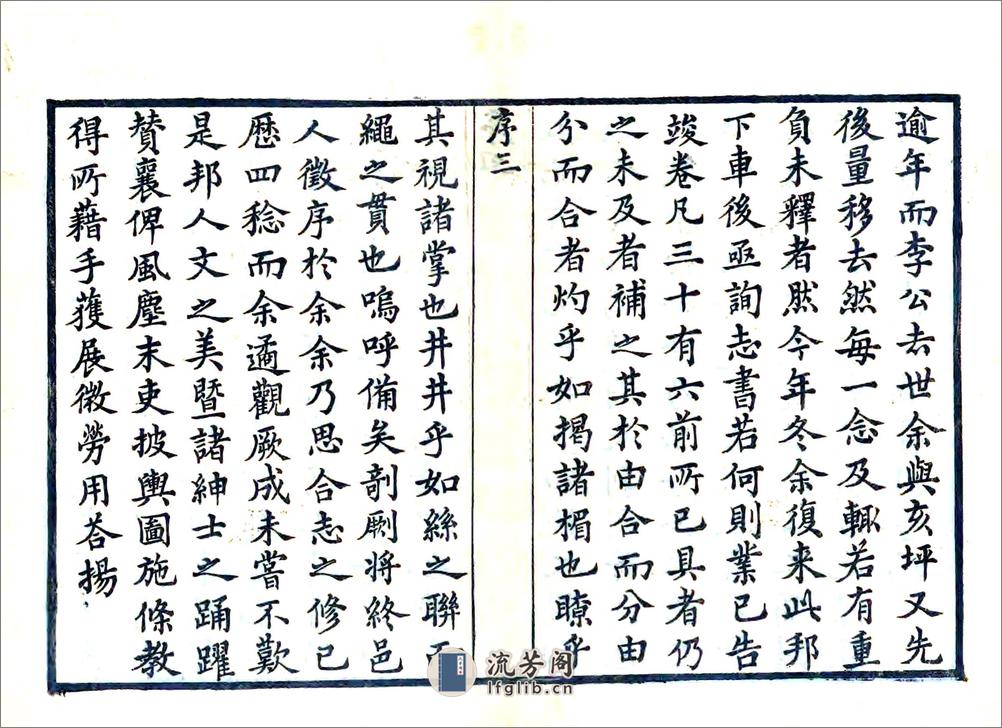 逾年而李公去世余與亥坪又先
後量移去然每一念及輒若有重
負未釋者然今年冬余復来此邦
下車後亟詢志書若何則業已告
竣卷凡三十有六前所已具者仍
之未及者補之其於由合而分由
分而合者灼乎如揭諸楣也瞭乎
序三
其視諸掌也井井乎如絲之聯而
繩之貫也嗚呼備矣剞劂將終邑
人徵序於余余乃思合志之修已
歴四稔而余遹觀厥成未嘗不歎
是邦人文之美暨諸紳士之踊躍
賛襄俾風塵末吏披輿圖施條教
得所藉手獲展微勞用荅揚
流芳阁
lfglib.cn